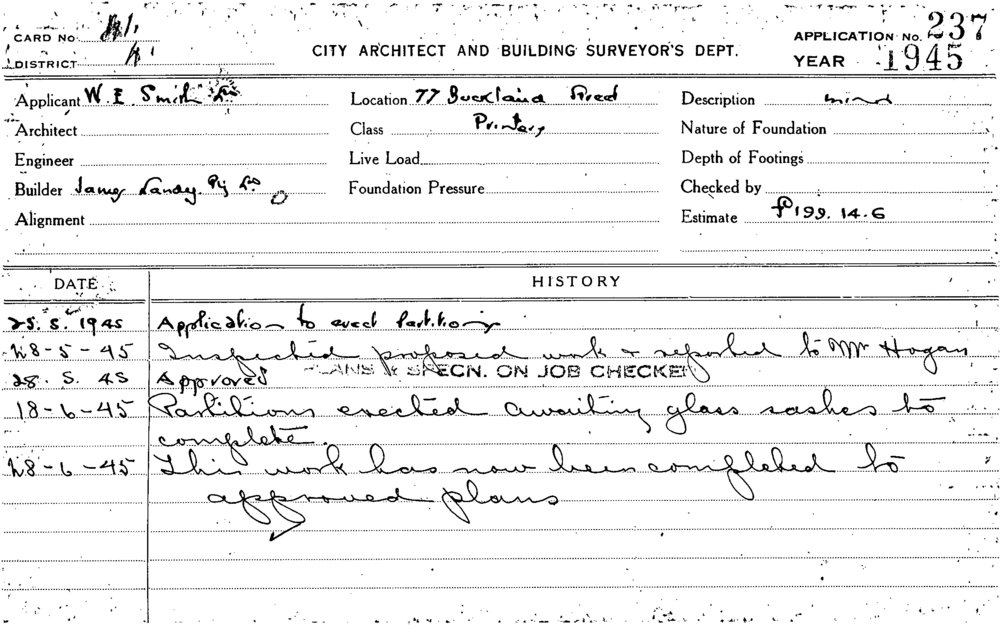 CARD No.
APPLICATION No. 237
DISTRICT
CITY ARCHITECT AND BUILDING SURVEYOR'S DEPT.
YEAR 1945
Applicant W. E. Smith Ld
Location 77 Buckland Street
Description minor
Architect
Class Printery
Nature of Foundation
Engineer
Live Load
Depth of Footings
Builder James Sandy Pty Ld
Foundation Pressure
Checked by
Alignment
Estimate £199.14.6
DATE HISTORY
25.5.1945 Application to erect Partitions
28-5-45 Inspected proposed work & reported to Mr Hogan
28.5.45 Approved PLANS & SPECN. ON JOB CHECKED
18-6-45 Partitions erected awaiting glass sashes to
complete.
28-6-45 This work has now been completed to
approved plans